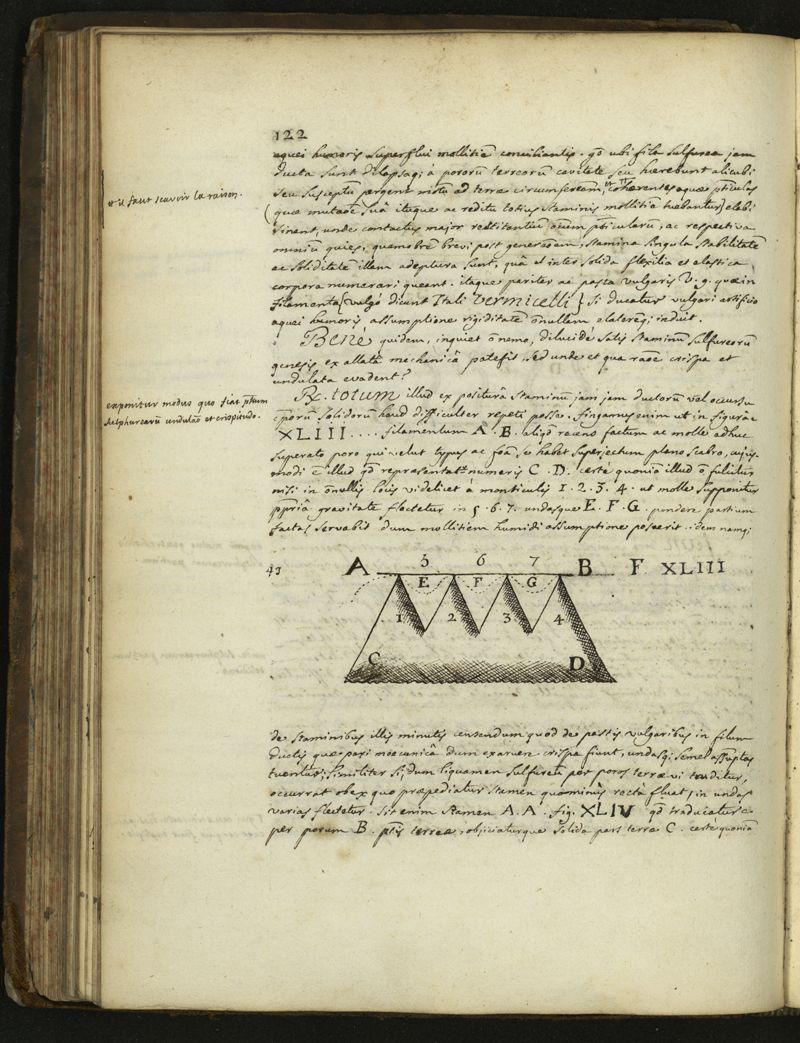 122
aquei humoris superflui mollitiē conciliantis. qd ubi fila sulfurea jam
ducta sunt dilapsaq; à pororū terreorū cavitate seu hærebunt alicubi
seu susceptū pergent motū ad terræ circumfereām, ut cohærentes aquæ pticulas
(quæ mutaōe suâ itaque ac reditu totius staminis mollitiē tuebantur) elabi
sinant, unde contactus major restitantiū oīum pticularū, ac respectiva
omniū quies, quemobrē brevi post generaōem, stamina singula stabilitatē
ac soliditatē illam adeptura sunt, quâ et inter solida flexilia et elastica
corpora numerari queant. itaque pariter ac pasta vulgaris v. g. quæ in
filamenta (vulgò dicunt Itali vermicelli) si ducatur vulgari artificio
aquei humoris assumptione rigiditatē ōnullam elateremq; induit.
Benè quidem, inquiet ōnemo, dilucidè satis staminū sulfureorū
genesis ex allatâ mechanicâ patefit, sed unde et qua raōe crispa et
undulata evadent?
R. totum illud ex positurâ staminū jam jam ductorū vel occursu
cporū solidorū haud difficulter repeti posse. fingamus enim ut in figurâ
XLIII .... filamentum A. B. aliqd recens factum ac molle adhuc
superato poro qui velut typus ac foa, se habet superjectum plano scabro, cujus-
modi ē illud qd repræsentatr numeris C. D. certè quoniā illud ō fulcitur
nisi in ōnullis locis videlicet à monticulis 1. 2. 3. 4. ut molle supponitur
ppriâ gravitate flectetur in 5. 6. 7. undasque E. F. G. pendere partium
factas servabit dum mollitiem humidi assumptione posuerit. idem namq;
o il faut scavoir la raison.
exponitur modus quo fiat ptum
sulphureorū undulaō et crispitudo.
43
A 5 6 7 B F XLIII
E F G
1 2 3 4
C D
de staminibus illis minutis censendum quod de pastis vulgaribus in filum
ductis quæ pari mecanicâ dum exaruere crispa fiunt, undasq; semel assuptas
tuentur; similiter si, dum liquamen sulfureū per poros terræ vi truditur,
occurrat obex quo præpediatur stamen quominùs rectà fluat, in undas
varias flectetur. Sit enim stamen A. A. fig. XLIV qd traducatur
per porum B. ptis terreæ, objiciaturque solida pars terræ C. certè quoniā